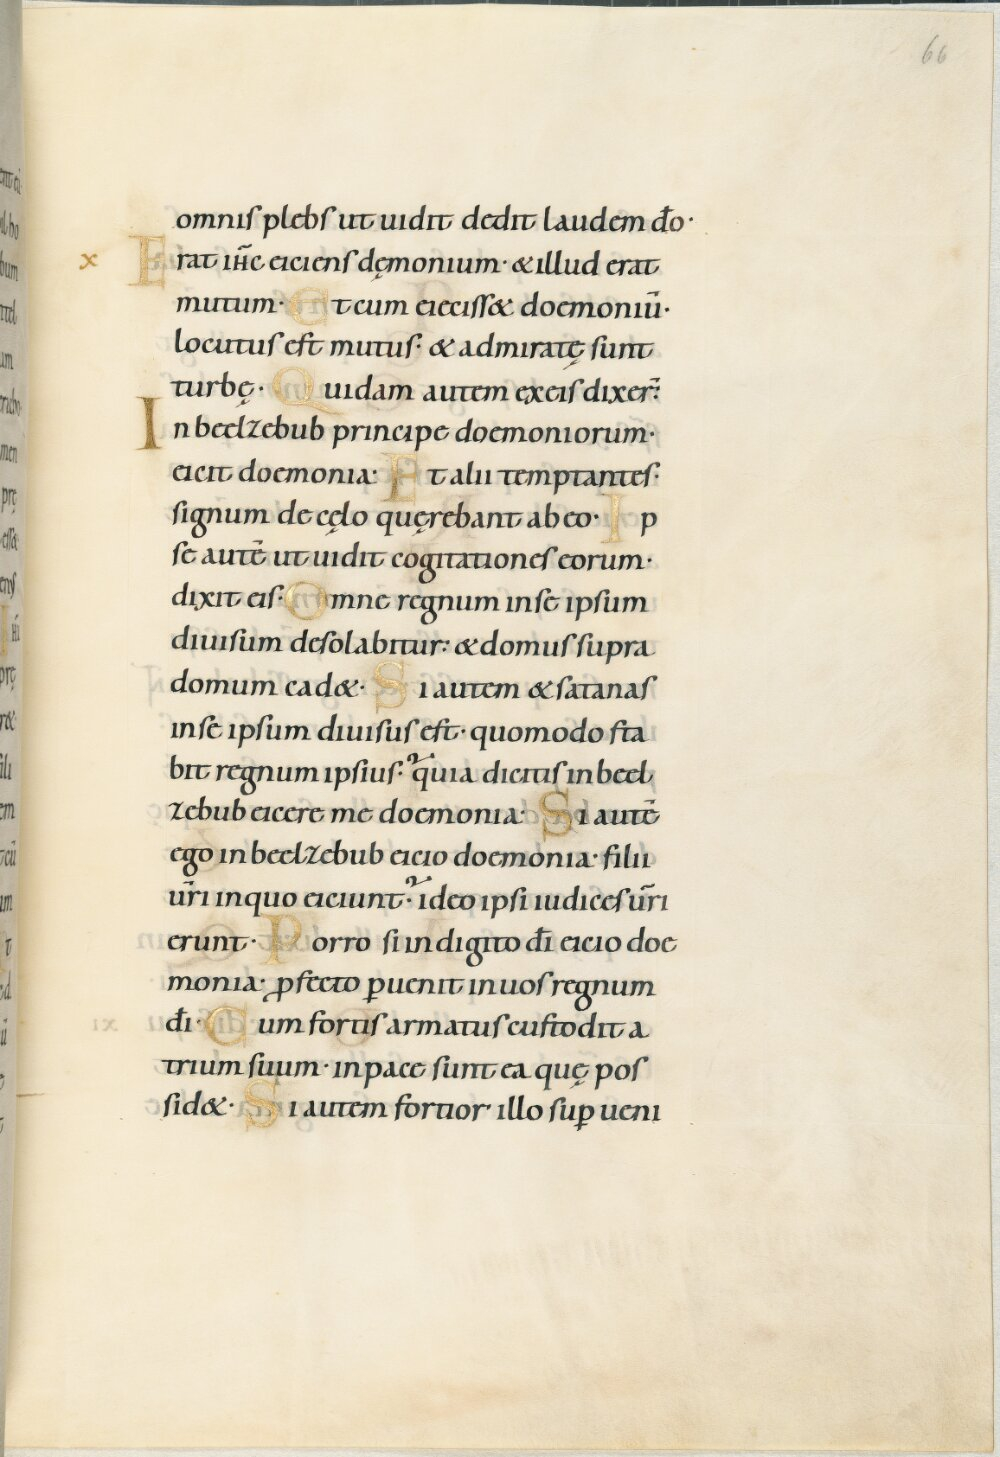 66
omnis plebs ut uidit dedit laudem do̅·
x Erat ih̅c eiciens dęmonium· & illud erat
mutum· Et cum eieciss& doemoniu̅·
locutus est mutus· & admiratę sunt
turbę· Quidam autem ex eis dixer̅:
In beelzebub principe doemoniorum·
eicit doemonia· Et alii temptantes·
signum de cęlo quęrebant ab eo· Ip
se aute̅ ut uidit cogitationes eorum·
dixit eis· Omne regnum in se ipsum
diuisum desolabitur: & domus supra
domum cad&· Si autem & satanas
in se ipsum diuisus est· quomodo sta
bit regnum ipsius? quia dicitis in beel
zebub eicere me doemonia· Si aute̅
ego in beelzebub eicio doemonia· filii
ur̅i in quo eiciunt? ideo ipsi iudices ur̅i
erunt· Porro si in digito di̅ eicio doe
monia· ꝓfecto ꝑuenit in uos regnum
di̅· Cum fortis armatus custodit a
trium suum· in pace sunt ea quę pos
sid&· Si autem fortior illo suꝑ ueni